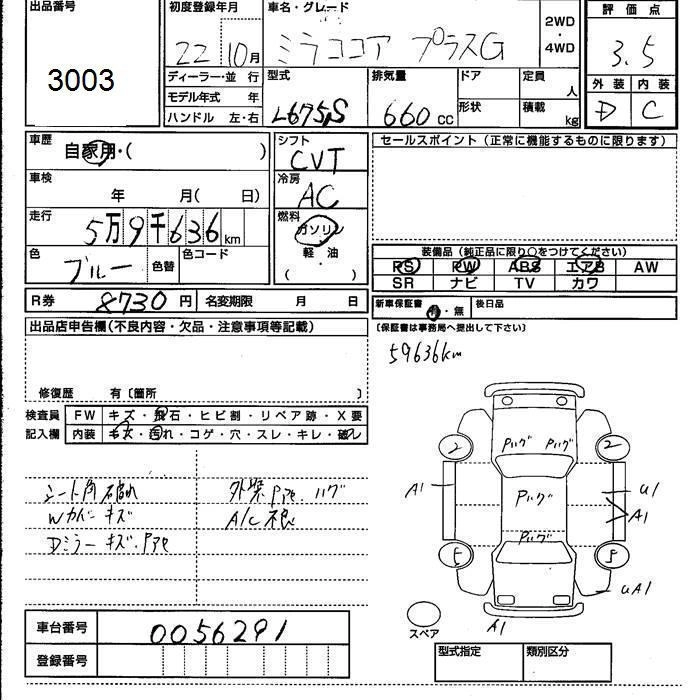 出品番号 初度登録年月 車名・グレード 評価点
3003 22 10月 ミラココア プラスG 2WD・4WD 3.5
ディーラー・並行 型式 排気量 ドア 定員 人 外装 内装
モデル年式 年 L675S 660cc 形状 積載 kg D C
ハンドル 左・右
車歴 自家用・( ) シフト CVT セールスポイント(正常に機能するものに限ります)
車検 年 月( 日) 冷房 AC
走行 5万9千636km 燃料 ガソリン
軽・油
( )
色 ブルー 色替 色コード 装備品(純正品に限り○をつけてください)
PS PW ABS エアB AW
SR ナビ TV カワ
R券 8730円 名変期限 月 日 新車保証書 有・無 後日品
出品店申告欄(不良内容・欠品・注意事項等記載) 〔保証書は事務局へ提出して下さい〕
59636km
修復歴 有〔箇所 〕
検査員 FW キズ・飛石・ヒビ割・リペア跡・X要
記入欄 内装 キズ・汚れ・コゲ・穴・スレ・キレ・破レ
シート角破れ 外装 Pアセ.ハゲ
Wカバーキズ A/C不良
Dミラーキズ.Pアセ
Pハゲ Pハゲ
2 2
A1 Pハゲ U1
A1
Pハゲ
5 5
UA1
スペア A1
車台番号 0056291
登録番号 型式指定 類別区分